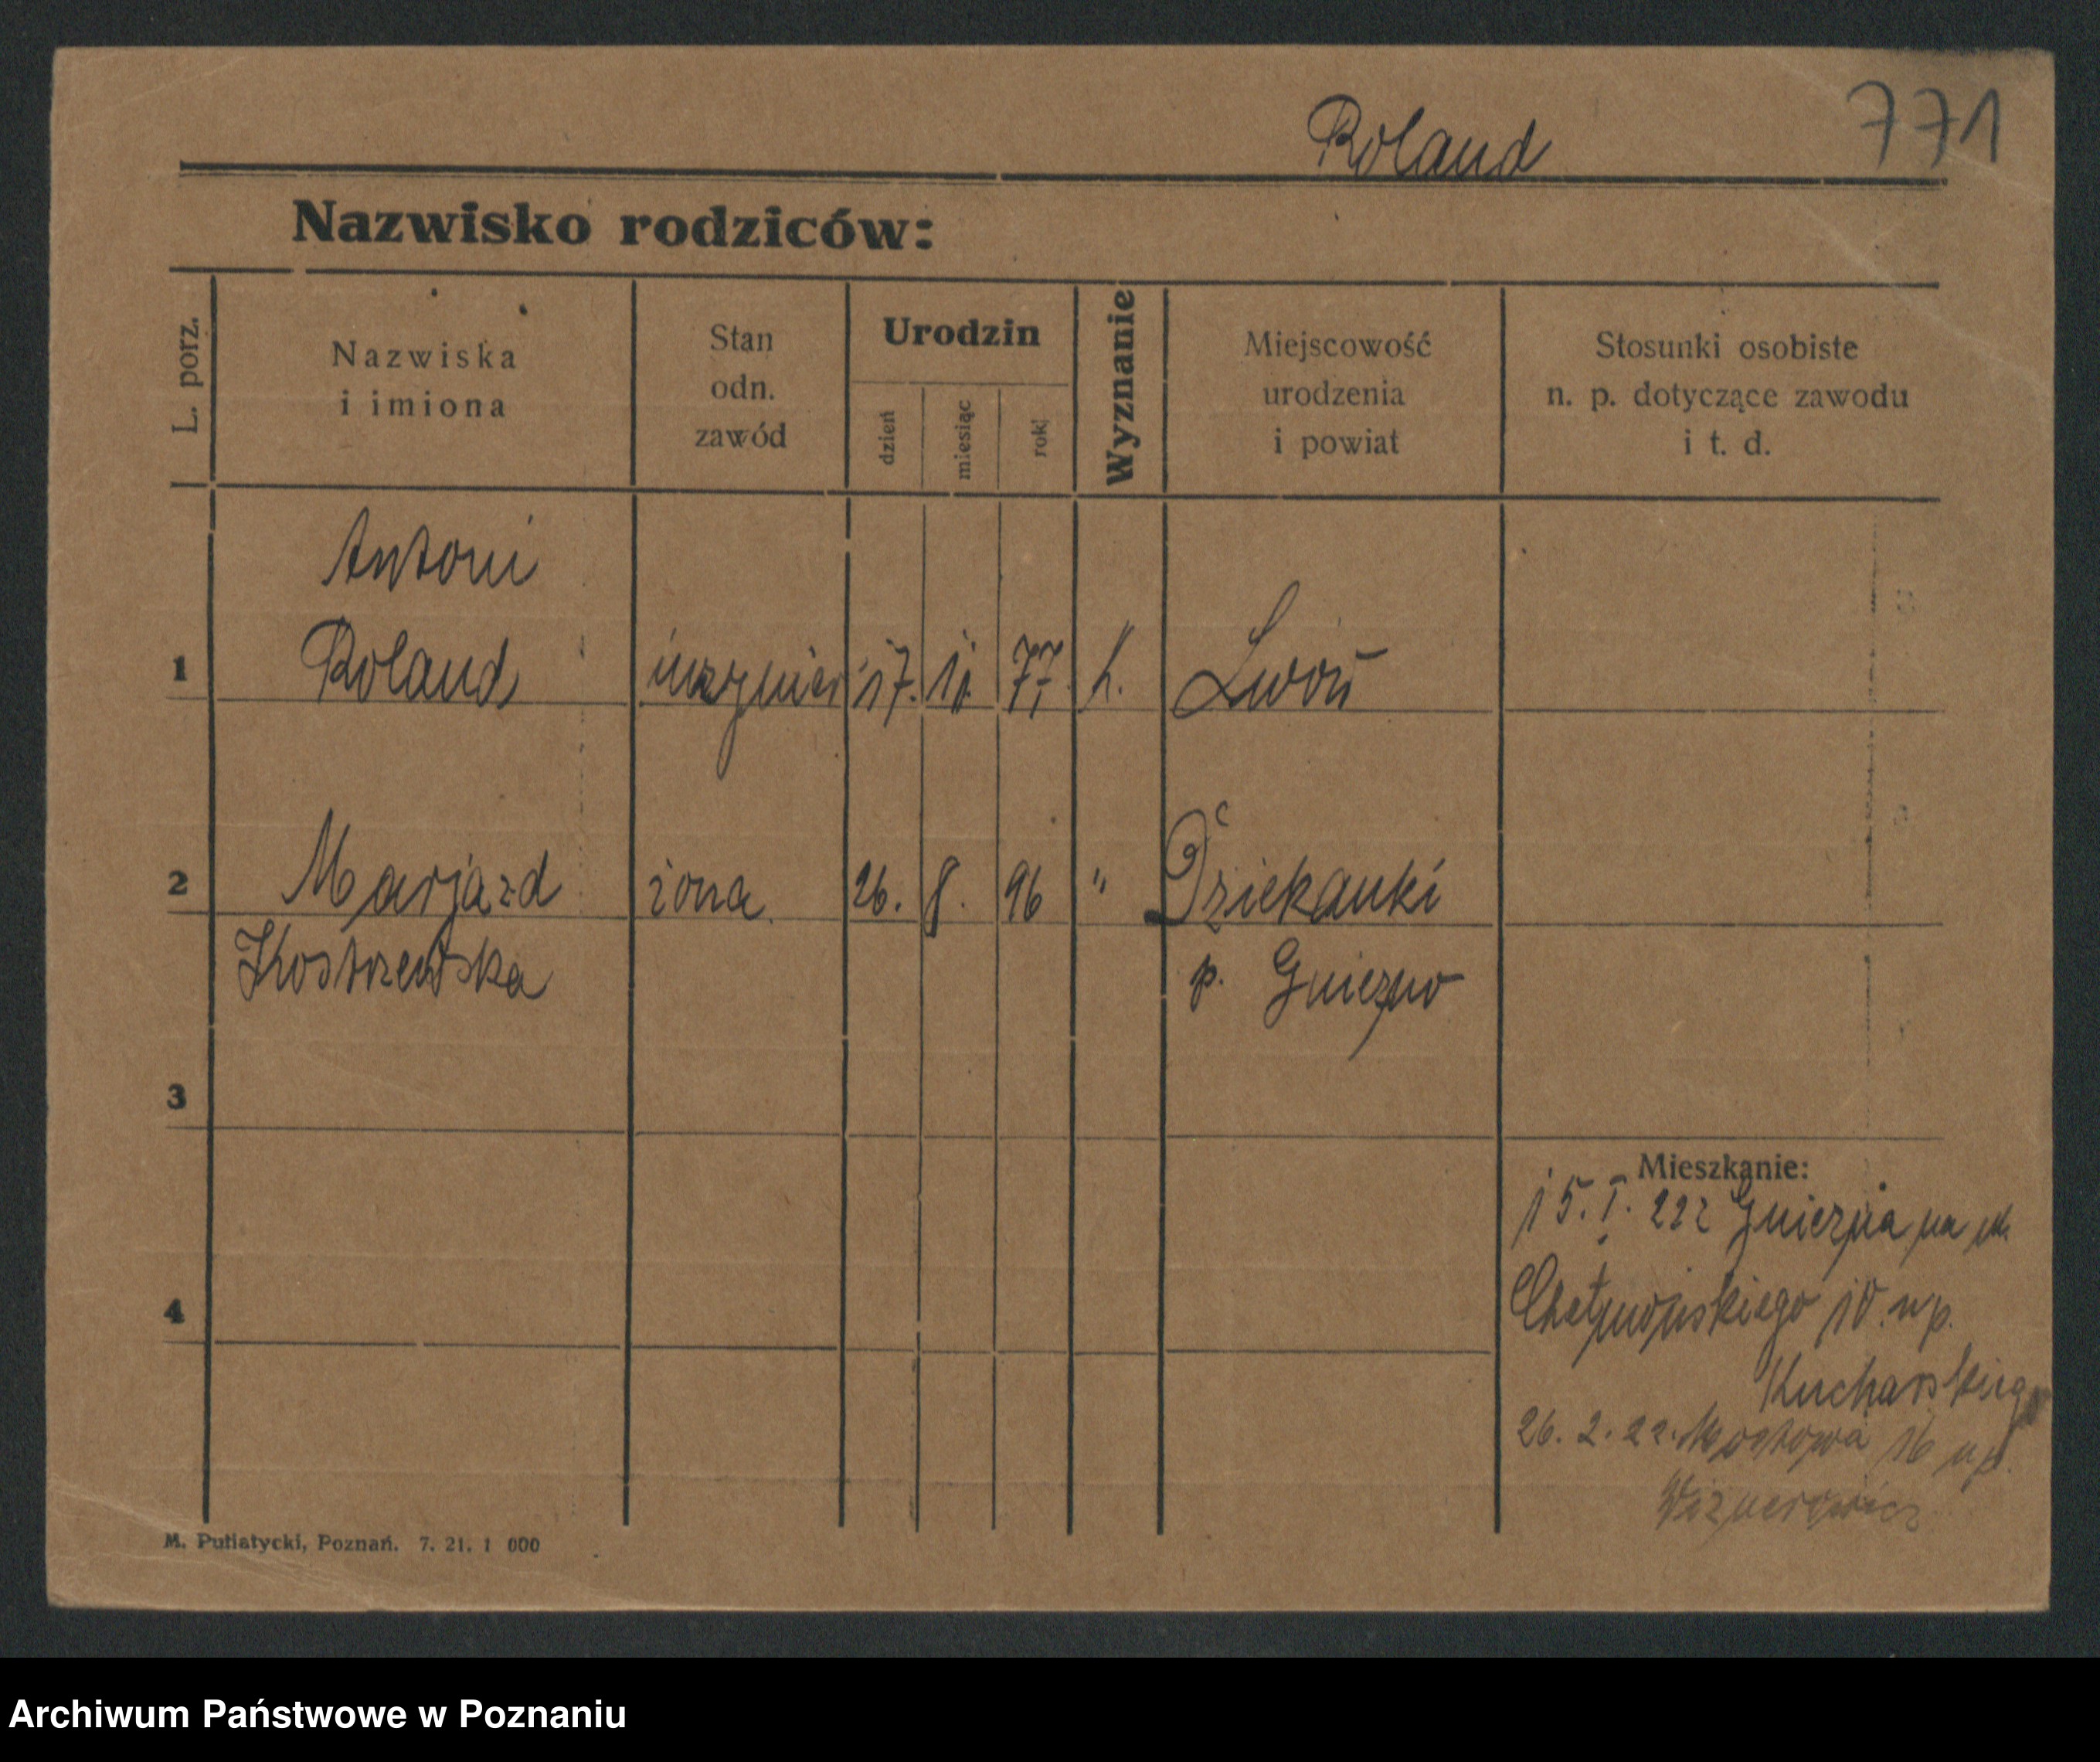 771
Roland
Nazwisko rodziców:
L. porz.
Nazwiska
i imiona
Stan
odn.
zawód
Urodzin
dzień
miesiąc
rok
Wyznanie
Miejscowość
urodzenia
i powiat
Stosunki osobiste
n. p. dotyczące zawodu
i t. d.
Antoni
1 Roland inżynier 17. 11. 77. k. Lwów
2 Marja zd żona 26. 8. 96 " Dziekanki
Kostrzewska p. Gniezno
3
Mieszkanie:
15. I. 22 z Gniezna na ul.
4
10. u p.
Kucharskiego
26. 2. 22. Mostowa 16 u p.
M. Putiatycki, Poznań. 7. 21. 1 000
Archiwum Państwowe w Poznaniu